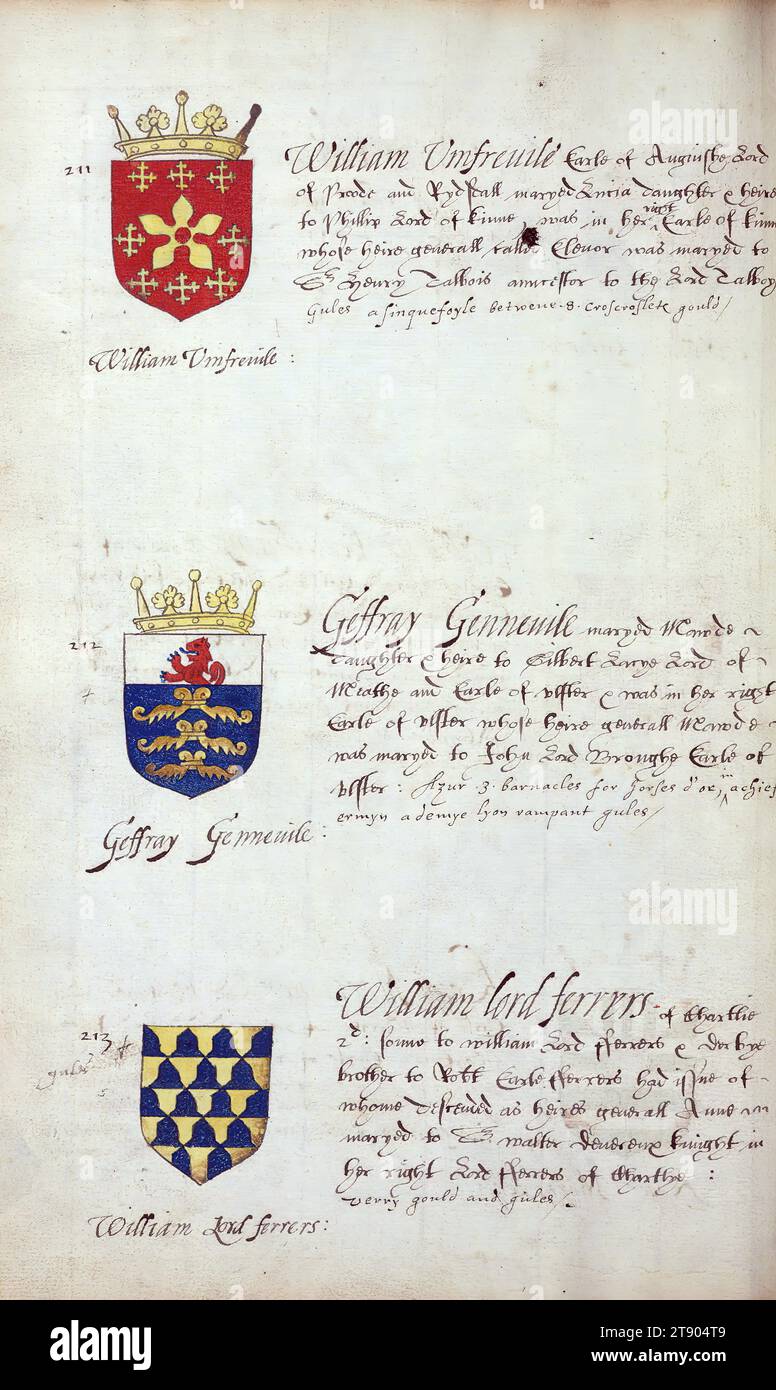 211
William Vmfrevile Earle of Anguishe Lord
of Proode and Rydstall maryed Lucia daughter & heire
to Phillip Lord of kinne, was in her right Earle of kinn
whose heire generall called Elenor was maryed to
Sr Henry Talbois anncestor to the Lord Talboy
Gules a sinquefoyle betwene .8. croscroslets gould/
William Vmfrevile :
212
Geffray Gennevile maryed Mawde
daughter & heire to Gilbert Lacye Lord of
Meathe and Earle of vlster & was in her right
Earle of vlster whose heire generall Mawde
was maryed to John Lord Broughe Earle of
vlster : Azur 3. barnacles for horses d'or, in achief
ermyn a demye lyon rampant gules/
Geffray Gennevile :
213
gules
William lord ferrers of Chartlie
2d: sonne to william Lord fferrers & derbye
brother to Robt Earle fferrers had issue of
whome descended as heires generall Anne
maryed to Sr walter devereux knight in
her right Lord fferrers of Chartlye :
verry gould and gules/.
William Lord ferrers :
alamy
alamy
alamy
alamy
Image ID: 2T904T9
www.alamy.com